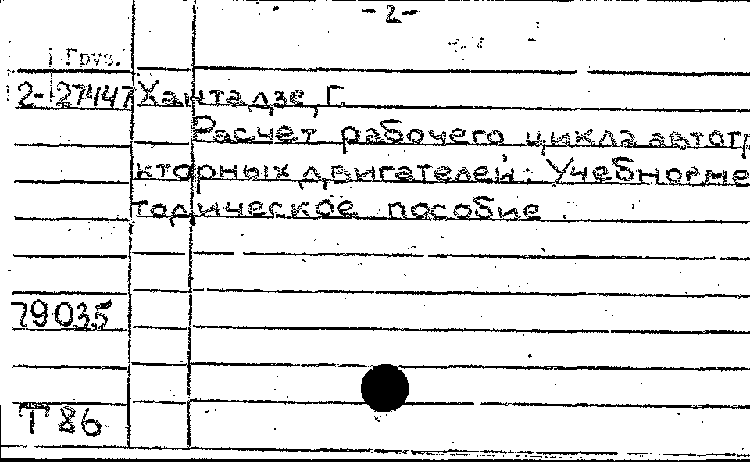 - 2 -
Груз.
2-27447 Хантадзе, Г.
Расчет рабочего цикла автотр
кторных двигателей: Учебно-ме
тодическое пособие.
79035
Т 86